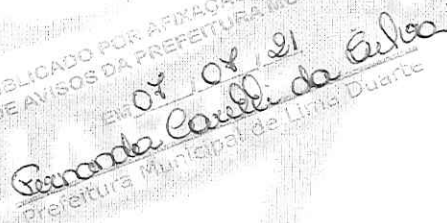 BLICADO POR AFIXAÇÃO
E AVISOS DA PREFEITURA MU
EM 07 07 21
Fernanda Carelli da Silva
Prefeitura Municipal de Lima Duarte